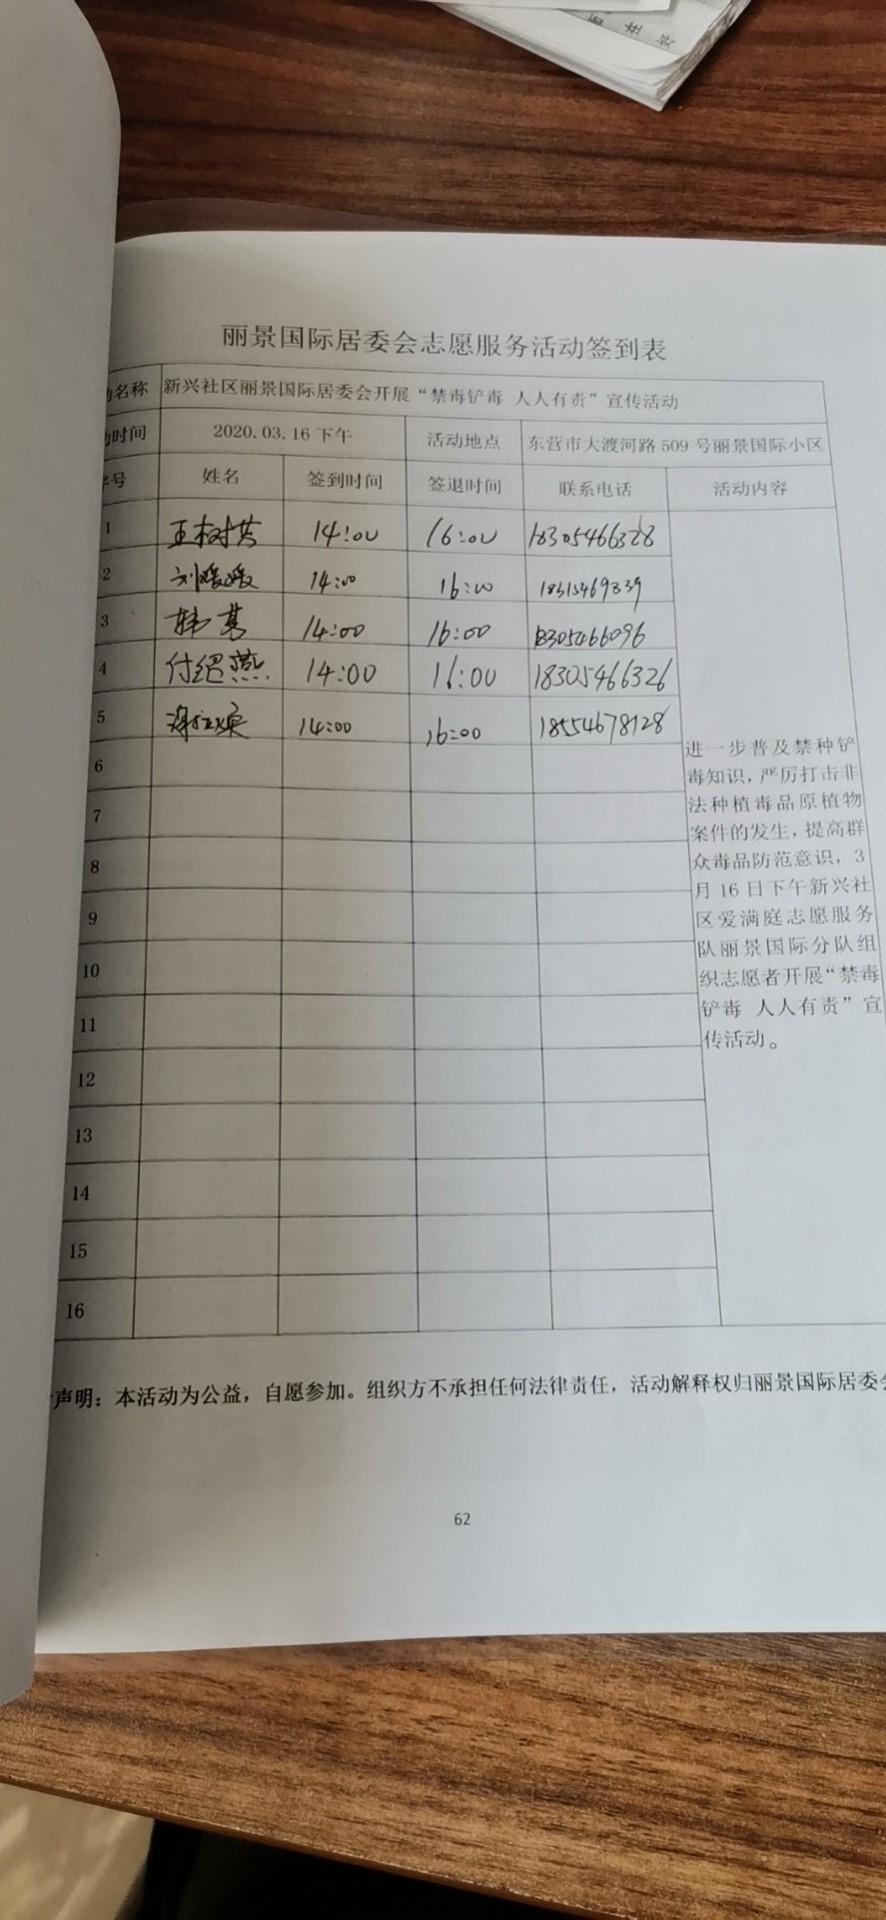 丽景国际居委会志愿服务活动签到表
动名称 新兴社区丽景国际居委会开展“禁毒铲毒 人人有责”宣传活动
动时间 2020.03.16 下午 活动地点 东营市大渡河路 509 号丽景国际小区
序号 姓名 签到时间 签退时间 联系电话 活动内容
1 王树芸 14:00 16:00 18305466328
2 刘媛媛 14:00 16:00
3 韩 14:00 16:00 18305466096
4 付绍燕 14:00 16:00 18305466326
5 14:00 16:00 18554678128
6
7
8
9
10
11
12
13
14
15
16
进一步普及禁种铲
毒知识，严厉打击非
法种植毒品原植物
案件的发生，提高群
众毒品防范意识，3
月 16 日下午新兴社
区爱满庭志愿服务
队丽景国际分队组
织志愿者开展“禁毒
铲毒 人人有责”宣
传活动。
声明：本活动为公益，自愿参加。组织方不承担任何法律责任，活动解释权归丽景国际居委会
62